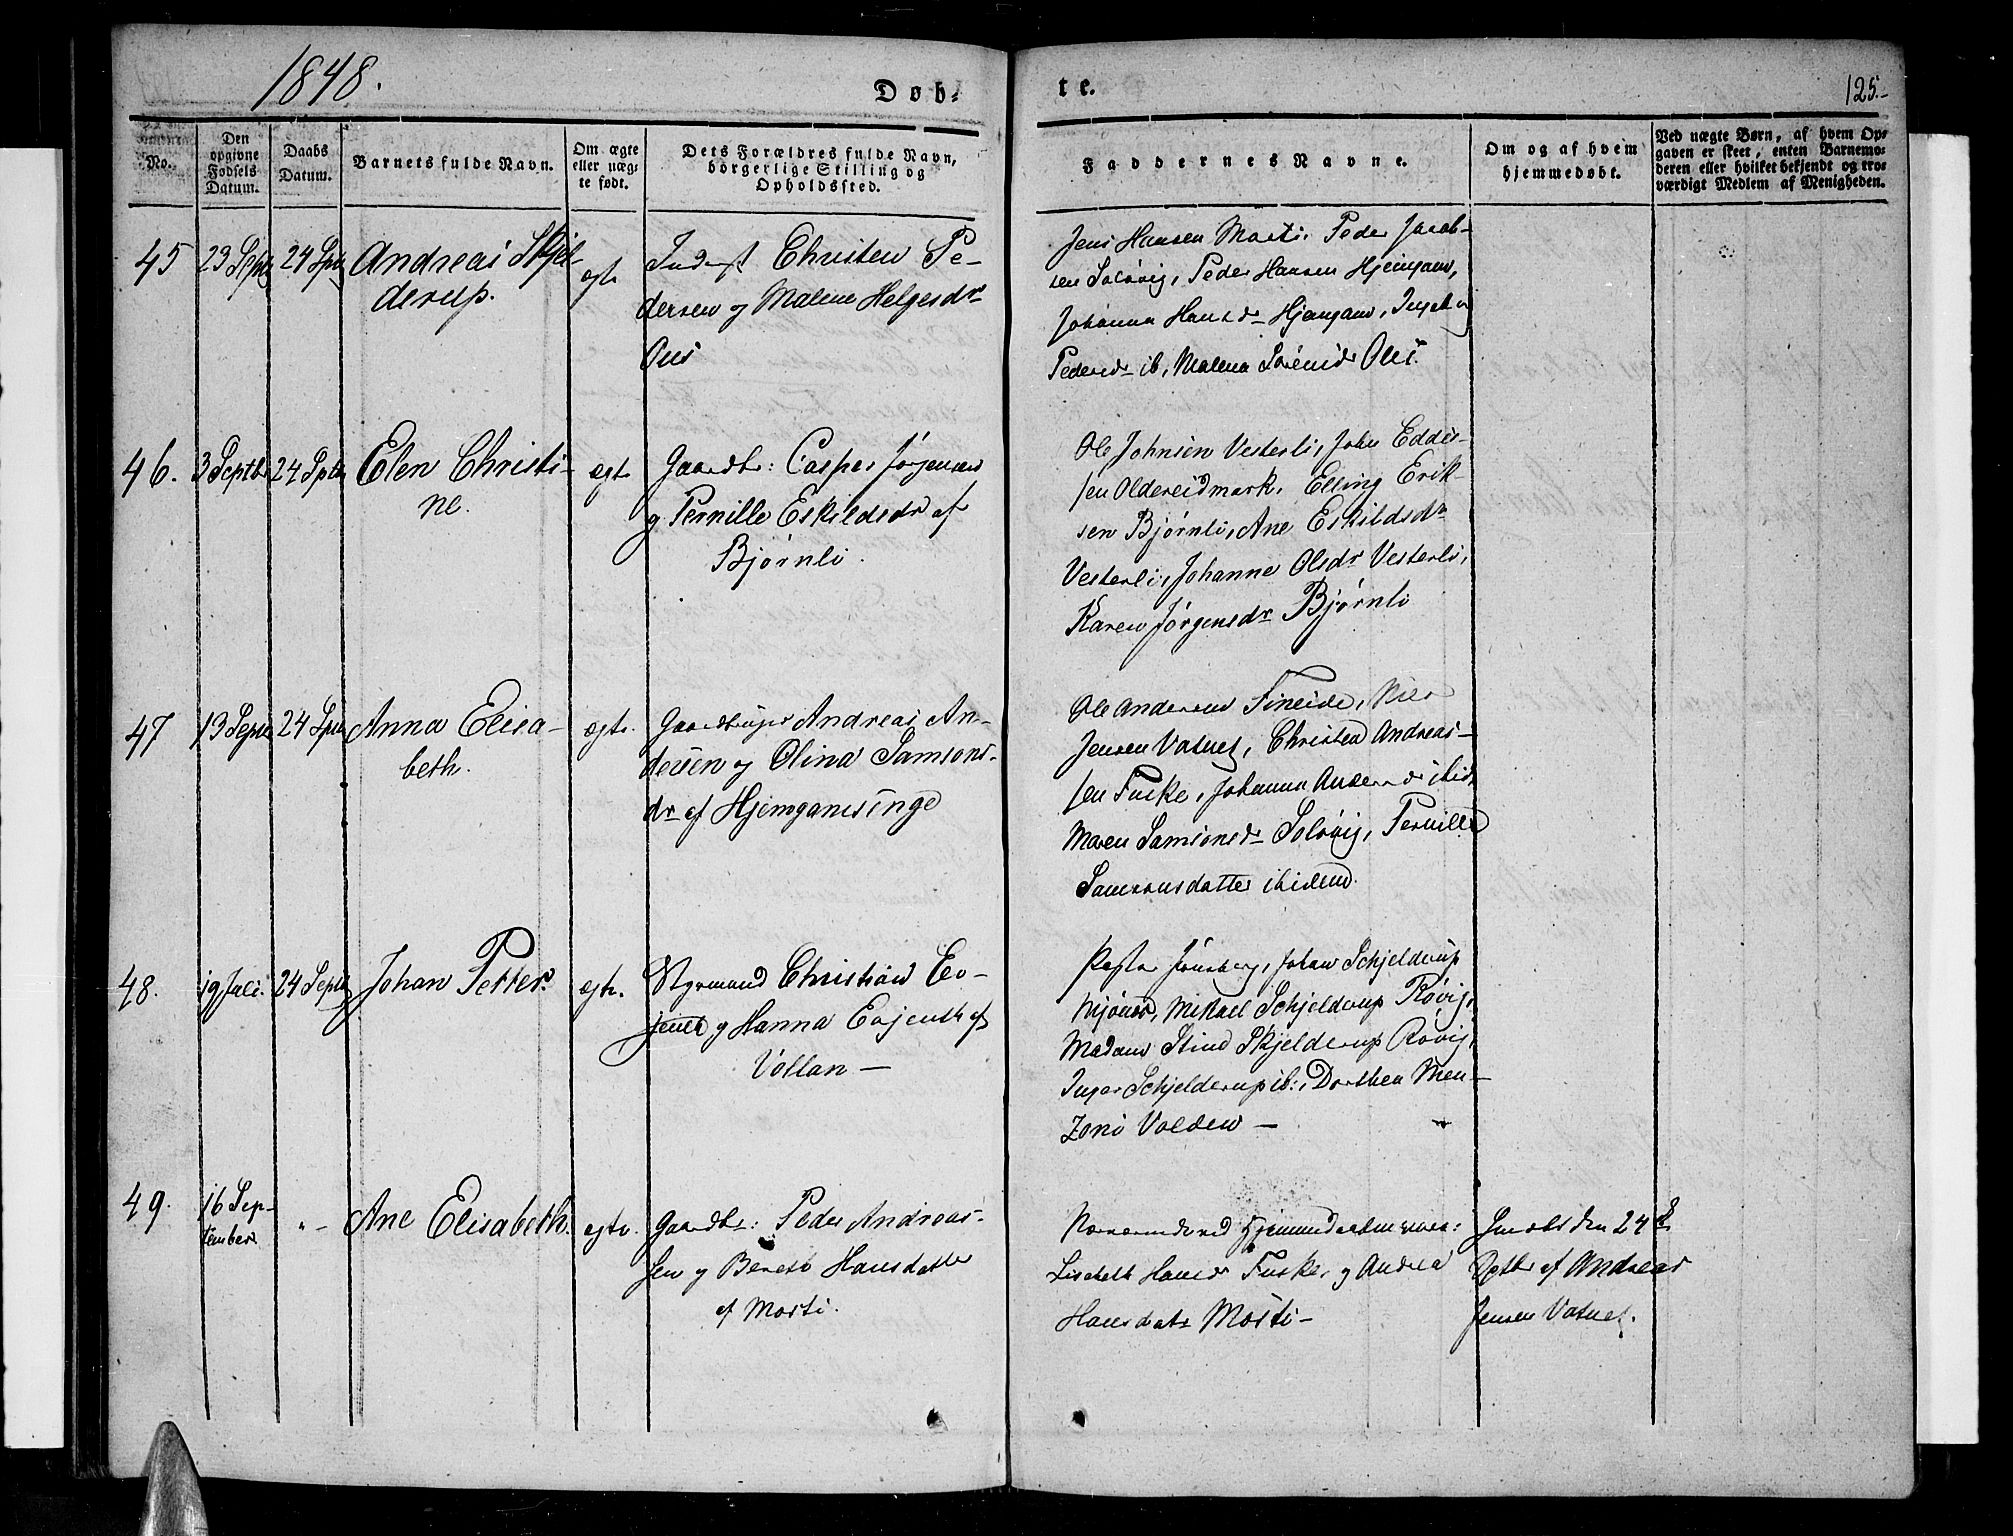 1848.
Døb-
te.
125.-
No.
Den opgivne Fødsels Datum.
Daabs Datum.
Barnets fulde Navn.
Om ægte eller uæg- te født.
Dets Forældres fulde Navn, borgerlige Stilling og Opholdssted.
Faddernes Navne.
Om og af hvem hjemmedøbt.
Ved uægte Børn, af hvem Op- gaven er skeet, enten Barnemo- deren eller hvilket bekjendt og tro- værdigt Medlem af Menigheden.
45 23 Septb 24 Sptb Andreas Skjel- egte Inderst Christen Pe-
derup.
dersen og Malene Helgesdr
Ous
Jens Hansen Mosti, Peder Jacob-
sen Solövig, Peder Hansen Hjemgam,
Johanna Hansdr Hjemgam,
Pedersdr ib, Malena Sörensdr
46. 3 Septbr 24 Sptb Elen Christi- ægte Gaardbr: Casper Jörgensen
ne.
og Pernille Eskildsdr af
Bjørnli.
Ole Johnsen Vesterli, John
sen Oldereidmark, Elling Erik-
sen Bjørnli, Ane Eskildsdr
Vesterli, Johanne Olsdr Vesterli,
Karen Jørgensdr Bjørnli
47 13 Septb 24 Sptb Anna Elisa- ægte. Gaardbruger Andreas An-
beth.
dersen og Olina Samsons-
dr af Hjemgams
Ole Andersen Fineide,
Jensen Vatnet, Christen Andreas-
sen Fuske, Johanna ibid
Maren Samsonsdr Solövig, Pernille
Samsonsdatter ibidem.
48. 19 Juli. 24 Septb Johan Petter. ægte. Styrmand Christian
og Hanna af
Vollan —
Pastor Jönsberg, Johan Schjelderup
Mikael Schjelderup Rövig,
Madam Stine Skjelderup Rövig,
Inger Schjelderup ib:, Dorthea Men-
Valden —
49. 16 Sep- "- Ane Elisabeth. egte. Gaardbr: Peder Andreas-
tember
sen og Hansdatter
af Mosti.
Nærværende ved Hjemmedaaben vare:
Lisebeth Hansdr Fuske, og Andrea
Hansdatr Mosti-
den 24de
Septbr af Andreas
Jensen Vatnet.